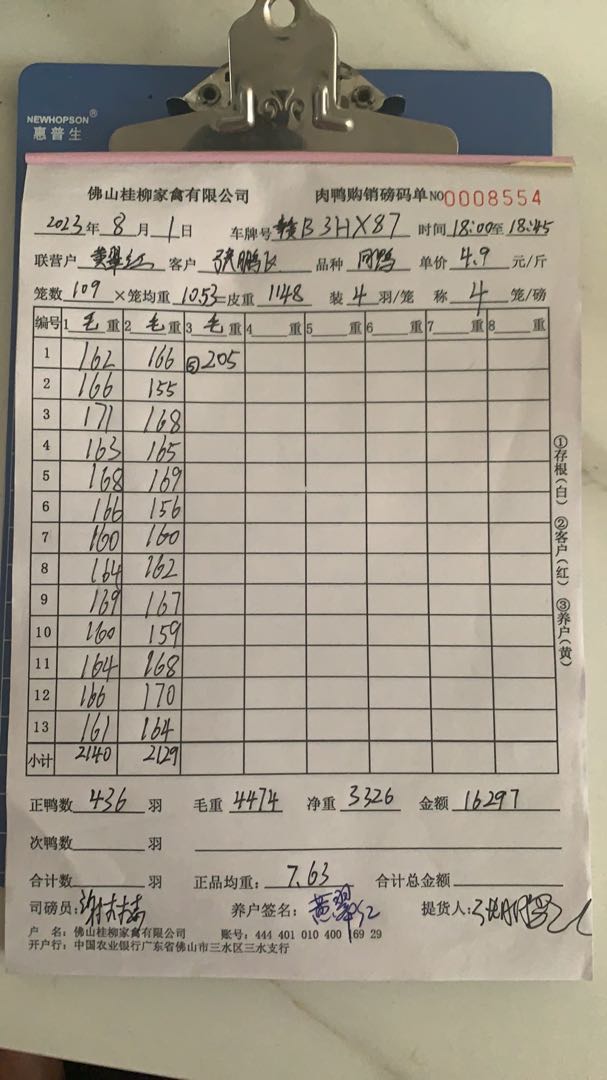 NEWHOPSON®
惠普生
佛山桂柳家禽有限公司 肉鸭购销磅码单 NO 0008554
2023年 8月 1日 车牌号 赣B3HX87 时间 18:00至18:45
联营户 黄翠红 客户 张鹏飞 品种 肉鸭 单价 4.9 元/斤
笼数 109 ×笼均重 10.53=皮重 1148 装 4 羽/笼 称 4 笼/磅
编号 1 毛 重 2 毛 重 3 毛 重 4 重 5 重 6 重 7 重 8 重
1 162 166 ⑤205
2 166 155
3 171 168
4 163 165
5 168 169
6 166 156
7 160 160
8 164 162
9 169 167
10 160 159
11 164 168
12 166 170
13 161 164
小计 2140 2129
①存根(白) ②客户(红) ③养户(黄)
正鸭数 436 羽 毛重 4474 净重 3326 金额 16297
次鸭数 羽
合计数 羽 正品均重: 7.63 合计总金额
司磅员: 养户签名: 黄翠红 提货人:
户 名: 佛山桂柳家禽有限公司 账号: 444 401 010 400 169 29
开户行: 中国农业银行广东省佛山市三水区三水支行